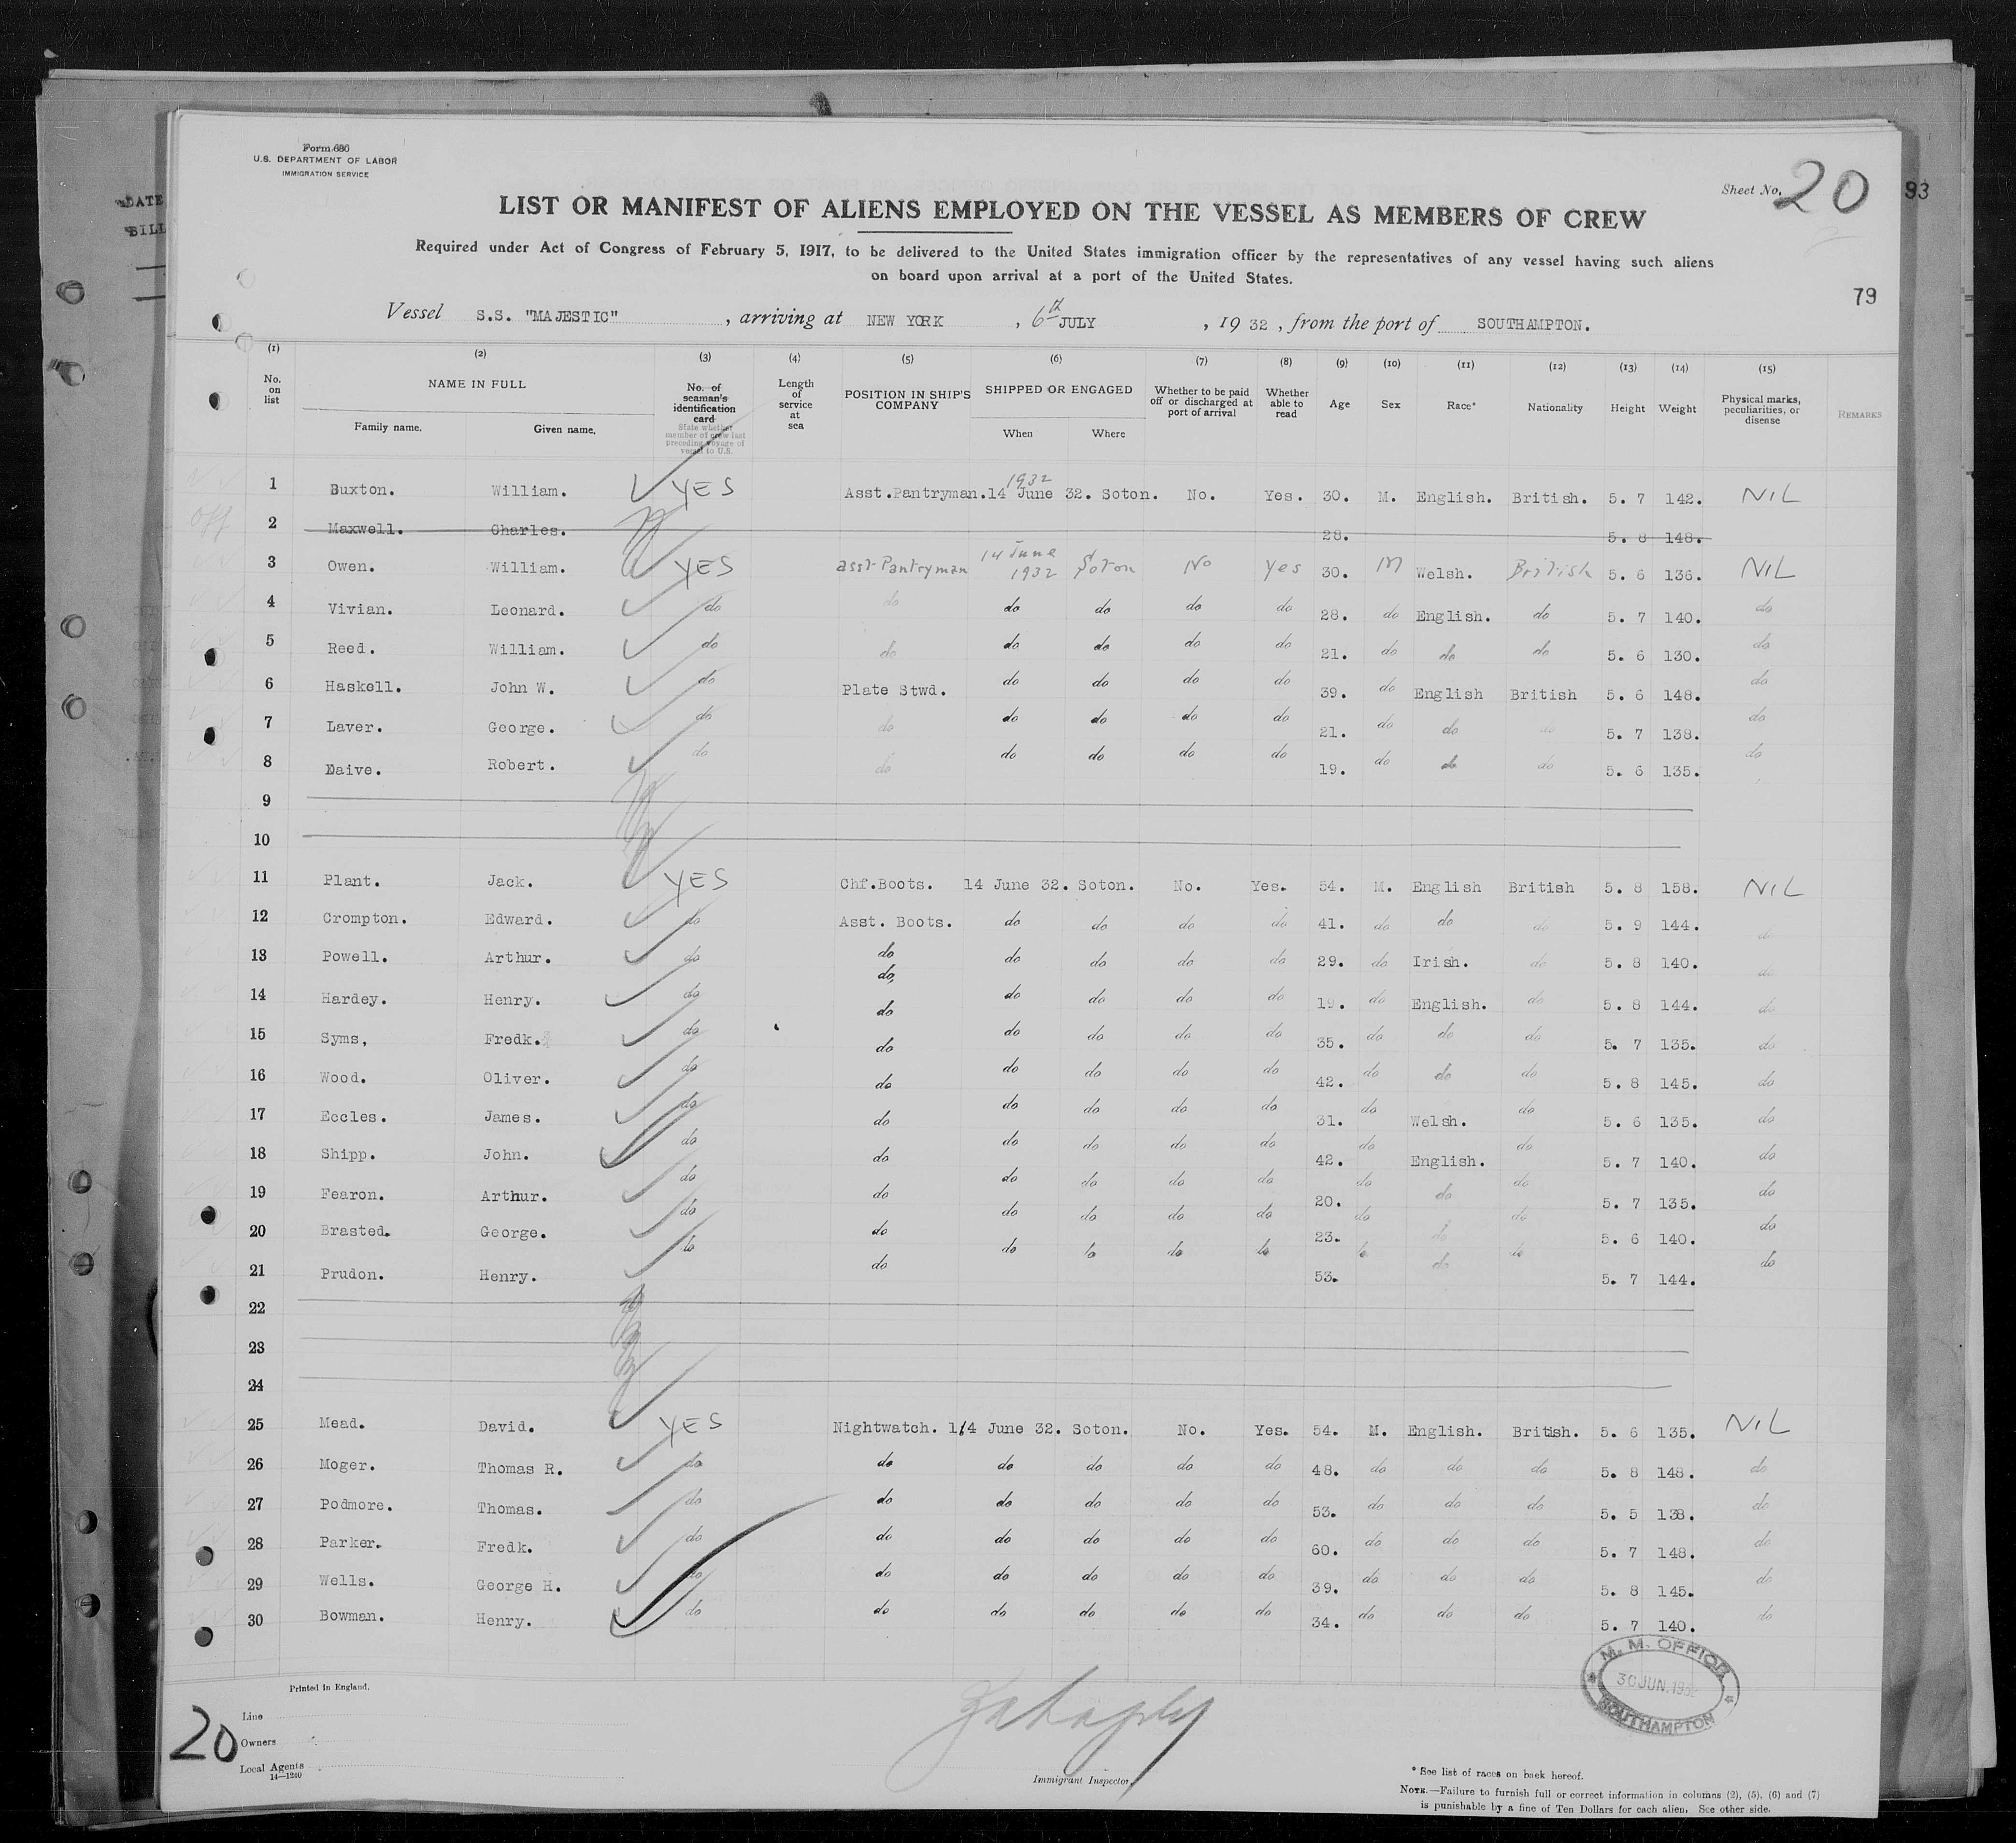 Form 680
U.S. DEPARTMENT OF LABOR
IMMIGRATION SERVICE
Sheet No. 20
93
LIST OR MANIFEST OF ALIENS EMPLOYED ON THE VESSEL AS MEMBERS OF CREW
Required under Act of Congress of February 5, 1917, to be delivered to the United States immigration officer by the representatives of any vessel having such aliens
on board upon arrival at a port of the United States.
79
Vessel S.S. "MAJESTIC", arriving at NEW YORK, 6th JULY, 1932, from the port of SOUTHAMPTON.
(1) (2) (3) (4) (5) (6) (7) (8) (9) (10) (11) (12) (13) (14) (15)
No. on list NAME IN FULL Family name. Given name. No. of seaman's identification card State whether member of crew last preceding voyage of vessel to U.S. Length of service at sea POSITION IN SHIP'S COMPANY SHIPPED OR ENGAGED When Where Whether to be paid off or discharged at port of arrival Whether able to read Age Sex Race* Nationality Height Weight Physical marks, peculiarities, or disease REMARKS
1 Buxton. William. YES Asst.Pantryman. 14 June 32. 1932 Soton. No. Yes. 30. M. English. British. 5. 7 142. NIL
off 2 Maxwell. Charles. 28. 5. 8 148.
3 Owen. William. YES asst Pantryman 14 June 1932 Soton No Yes 30. M Welsh. British 5. 6 136. NIL
4 Vivian. Leonard. do do do do do do 28. do English. do 5. 7 140. do
5 Reed. William. do do do do do do 21. do do do 5. 6 130. do
6 Haskell. John W. do Plate Stwd. do do do do 39. do English British 5. 6 148. do
7 Laver. George. do do do do do do 21. do do do 5. 7 138. do
8 Daive. Robert. do do do do do do 19. do do do 5. 6 135. do
9
10
11 Plant. Jack. YES Chf.Boots. 14 June 32. Soton. No. Yes. 54. M. English British 5. 8 158. NIL
12 Crompton. Edward. do Asst. Boots. do do do do 41. do do do 5. 9 144. do
13 Powell. Arthur. do do do do do do do 29. do Irish. do 5. 8 140. do
14 Hardey. Henry. do do do do do do 19. do English. do 5. 8 144. do
15 Syms, Fredk. do do do do do do 35. do do do 5. 7 135. do
16 Wood. Oliver. do do do do do do 42. do do do 5. 8 145. do
17 Eccles. James. do do do do do do 31. do Welsh. do 5. 6 135. do
18 Shipp. John. do do do do do do 42. do English. do 5. 7 140. do
19 Fearon. Arthur. do do do do do do 20. do do do 5. 7 135. do
20 Brasted. George. do do do do do do 23. do do do 5. 6 140. do
21 Prudon. Henry. do do do do do do 53. do do do 5. 7 144. do
22
23
24
25 Mead. David. YES Nightwatch. 14 June 32. Soton. No. Yes. 54. M. English. British. 5. 6 135. NIL
26 Moger. Thomas R. do do do do do do 48. do do do 5. 8 148. do
27 Podmore. Thomas. do do do do do do 53. do do do 5. 5 138. do
28 Parker. Fredk. do do do do do do 60. do do do 5. 7 148. do
29 Wells. George H. do do do do do do 39. do do do 5. 8 145. do
30 Bowman. Henry. do do do do do do 34. do do do 5. 7 140. do
M. M. OFFICE
30 JUN. 1932
SOUTHAMPTON
Printed in England.
20
Line
Owners
Local Agents
14—1240
Immigrant Inspector.
* See list of races on back hereof.
NOTE.—Failure to furnish full or correct information in columns (2), (5), (6) and (7)
is punishable by a fine of Ten Dollars for each alien. See other side.
DATE
BILL